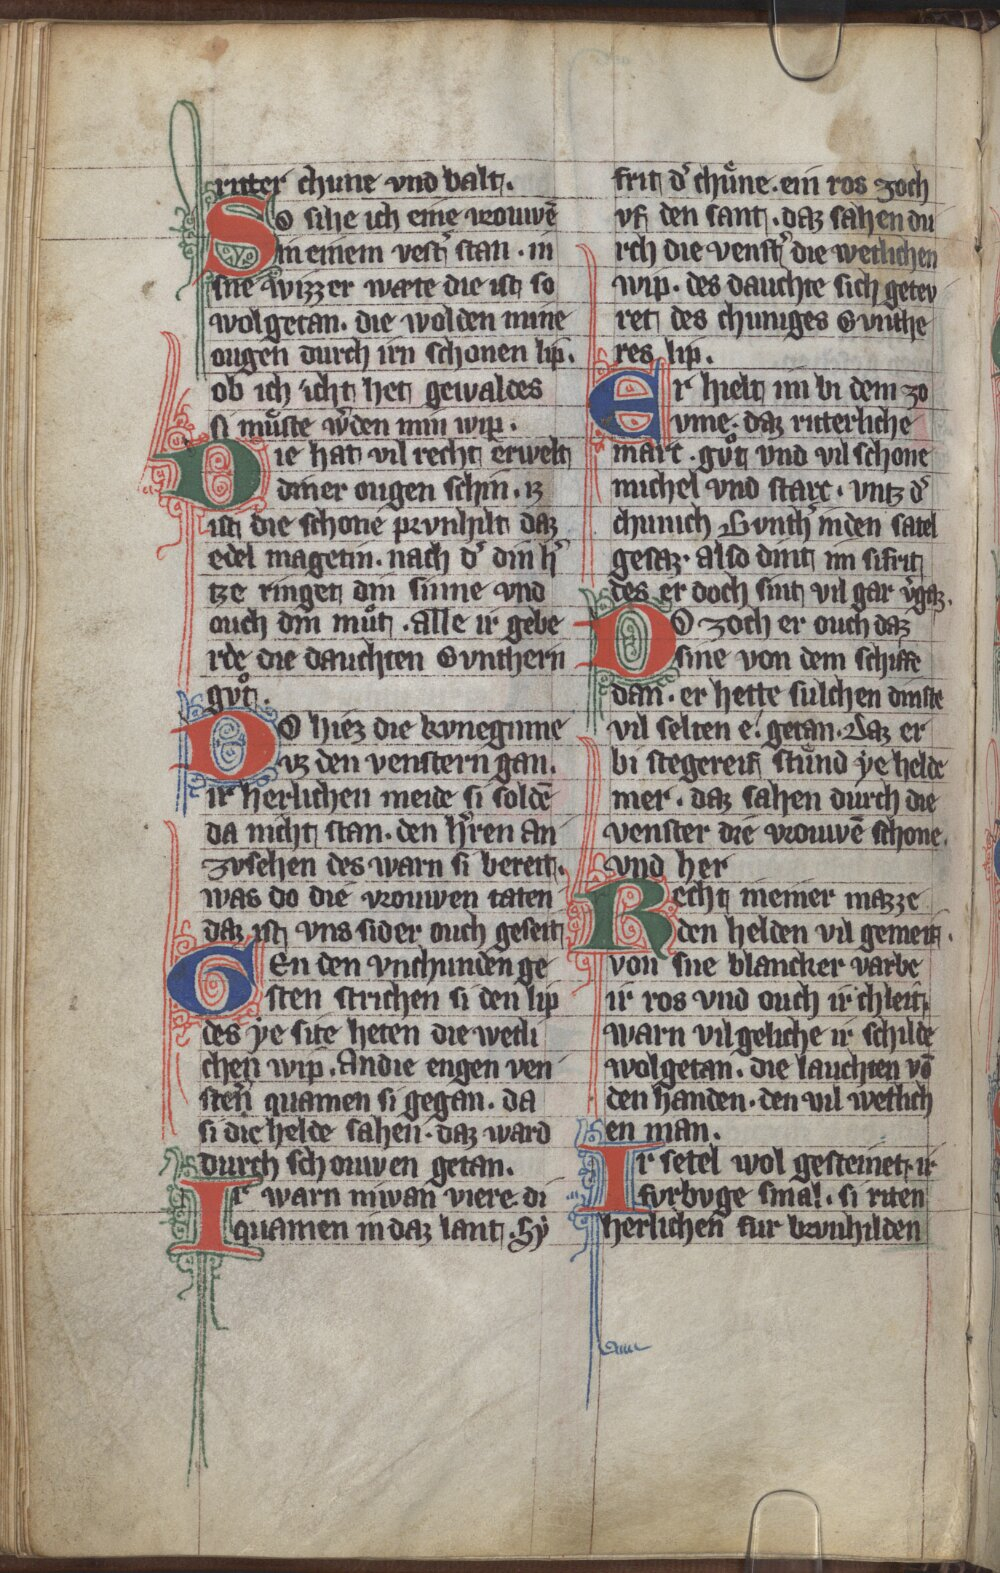 ritter chune vnd balt.
So sihe ich eine vrouwē
in einem vestˀ stan . in
sne wizzer wæte die ist so
wolgetan. die wolden mine
ougen durch irn schonen lip.
ob ich icht het gewaldes
si můste wˀden min wip.
Die hat vil recht erwelt
diner ougen schin. iz
ist die schone prvnhilt daz
edel magetin. nach dˀ din hˀ
tze ringet din sinne vnd
ouch din můt . Alle ir gebe
rde die dauchten Gvnthern
gůt.
Do hiez die kvneginne
vz den venstern gan.
ir herlichen meide si soldē
da nicht stan. den hˀren an
zvsehen des warn si bereit.
was do die vrouwen taten
daz ist vns sider ouch geseit
Gen den vnchunden ge
sten strichen si den lip
des ye site heten die wetli
chen wip. Andie engen ven
stern quamen si gegan. da
si die helde sahen. daz ward
durch schouwen getan.
Ir warn niwan viere. di
quamen in daz lant. Sy
frit dˀ chůne. ein ros zoch
vf den sant. daz sahen du
rch die venstˀ die wetlichen
wip. des dauchte sich getev
ret des chuniges Gvnthe
res lip.
Er hielt im bi dem zo
vme. daz ritterliche
marc. gůt vnd vil schone
michel vnd starc. vntz dˀ
chunich Gvnthˀ inden satel
gesaz. also dint im sifrit
des er doch sint vil gar vˀgaz.
Do zoch er ouch daz
sine von dem schiffe
dan. er hette sulchen dinste
vil selten e. getan. Daz er
bi stegereif stůnd ye helde
mer. daz sahen durch die
venster die vrouwē schone.
vnd her
Recht in einer mazze
den helden vil gemeit.
von sne blancker varbe
ir ros vnd ouch ir chleit.
warn vil geliche ir schilde
wolgetan. die lauchten vō
den handen. den vil wetlich
en man.
Ir setel wol gesteinet. ir
fvrbvge smal. si riten
herlichen fur brvnhilden